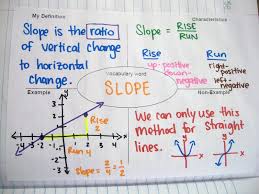 My Definition
Slope is the ratio
of vertical change
to horizontal
change.
Characteristics
Slope = RISE
RUN
Rise
up-positive
down-
negative
Run
right-
positive
left-
negative
Vocabulary word
SLOPE
Example
3
2
1
-3 -2
1 2 3
x
-1
-2
-3
Rise
2
Run 4
slope = 2/4 = 1/2
Non-Example
We can only use this
method for straight
lines.
x
x